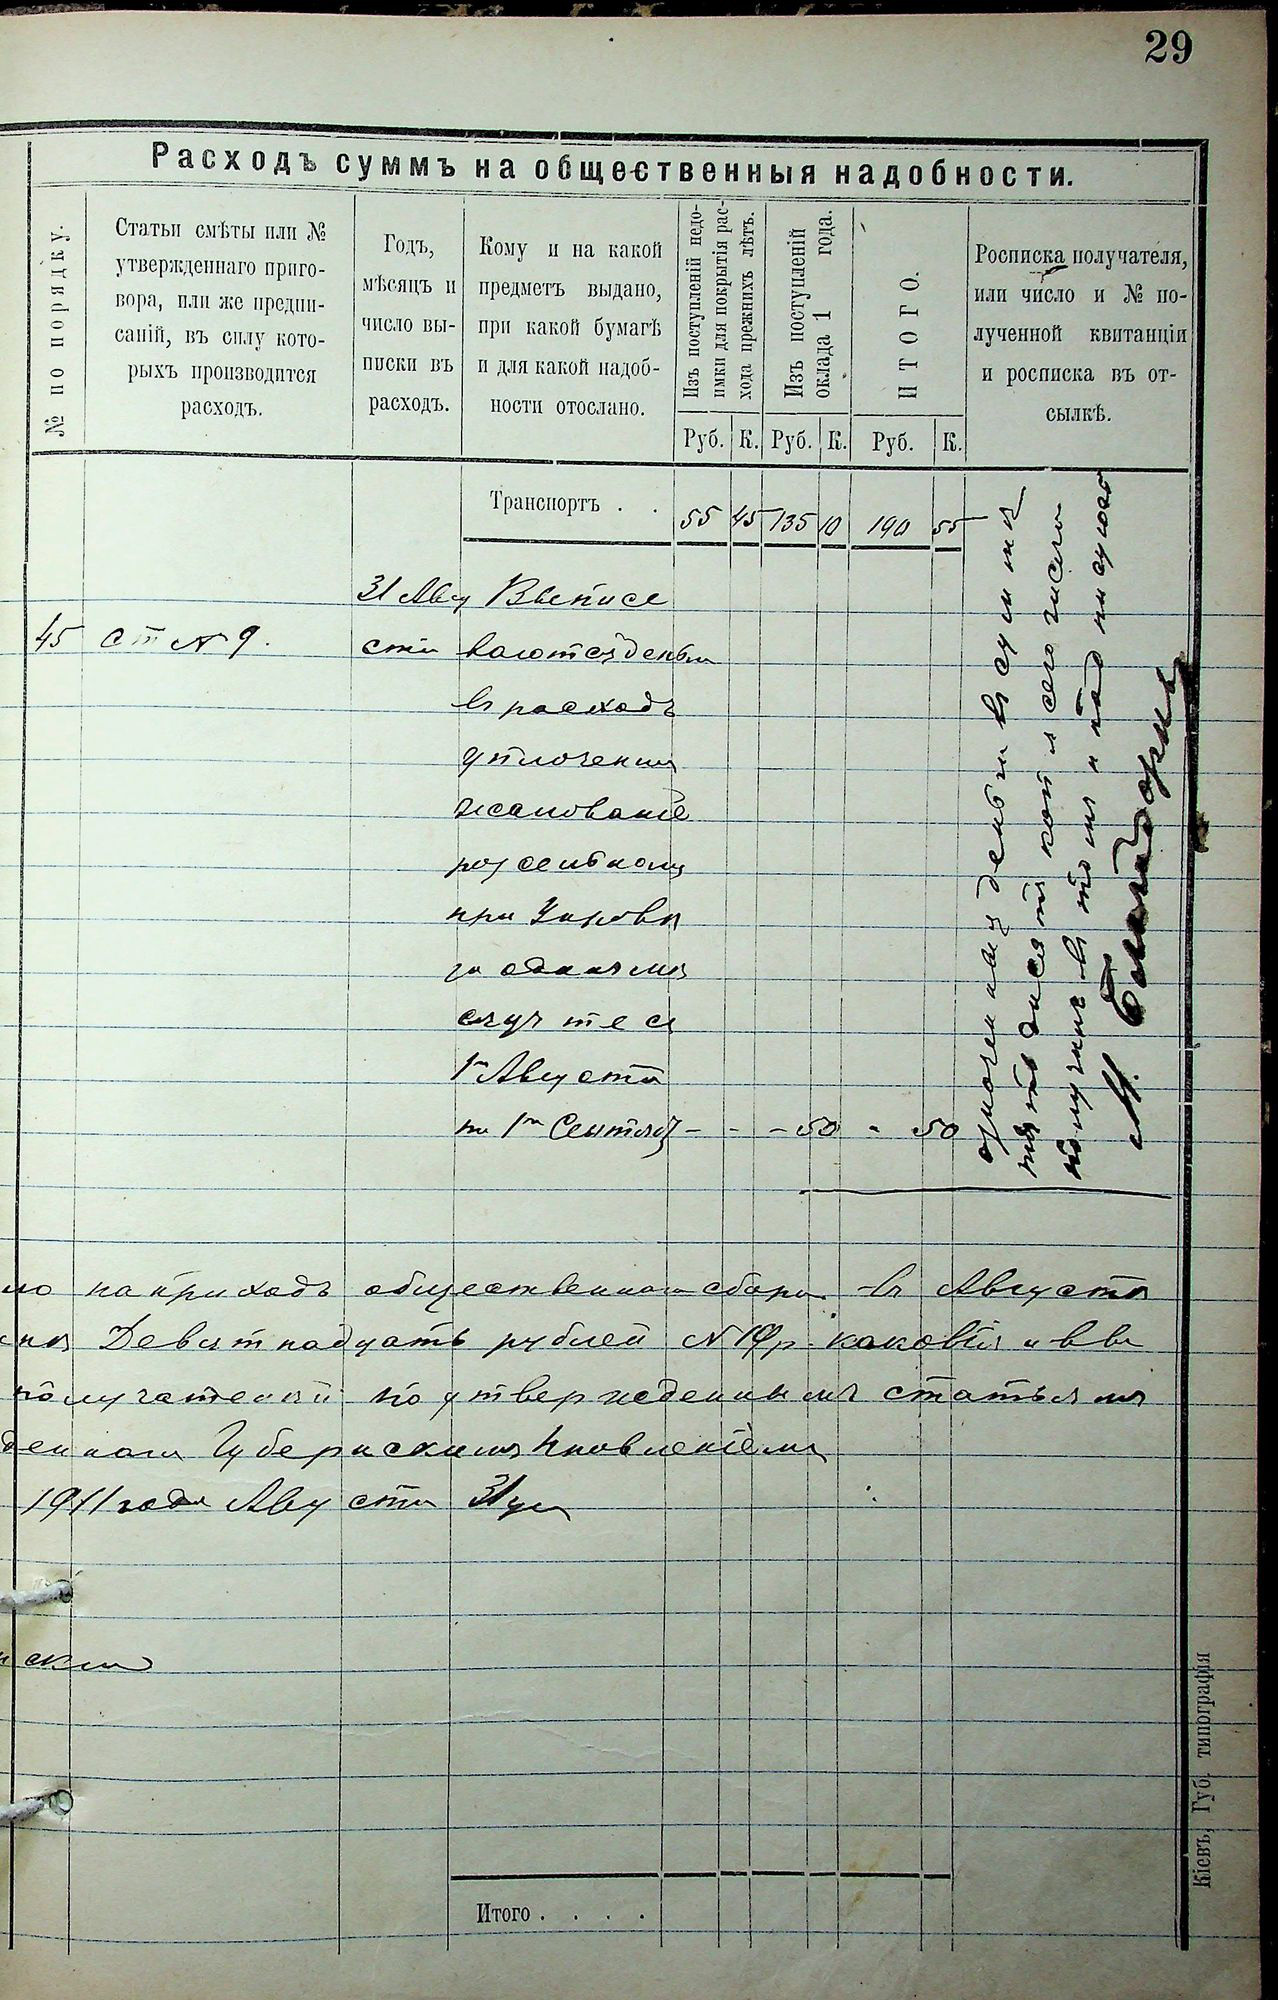 29
Расходъ суммъ на общественныя надобности.
№ по порядку.
Статьи смѣты или №
утвержденнаго приго-
вора, или же предпи-
саній, въ силу кото-
рыхъ производится
расходъ.
Годъ,
мѣсяцъ и
число вы-
писки въ
расходъ.
Кому и на какой
предметъ выдано,
при какой бумагѣ
и для какой надоб-
ности отослано.
Изъ поступленій недо-
имки для покрытія рас-
хода прежнихъ лѣтъ.
Изъ поступленій
оклада 1 года.
ИТОГО.
Росписка получателя,
или число и № по-
лученной квитанціи
и росписка въ от-
сылкѣ.
Руб. К. Руб. К. Руб. К.
Транспортъ . . 55 45 135 10 190 55
31 Авгу Выписы
45 ст № 9. ста ваются деньги
въ расходъ
уплочении
жалованіе
при
1го Августа
по 1го Сентяб - - - 50 - 50
деньги въ сумма
сего числа
получилъ
М.
на приходъ общественнаго сбора въ Августа
Девятнадцать рублей № 19 р. каковыя
получателей по утвержденнымъ статьямъ
Губернскимъ
1911 года Августа 31 дня
Итого . . . .
Кіевъ, Губ. типографія